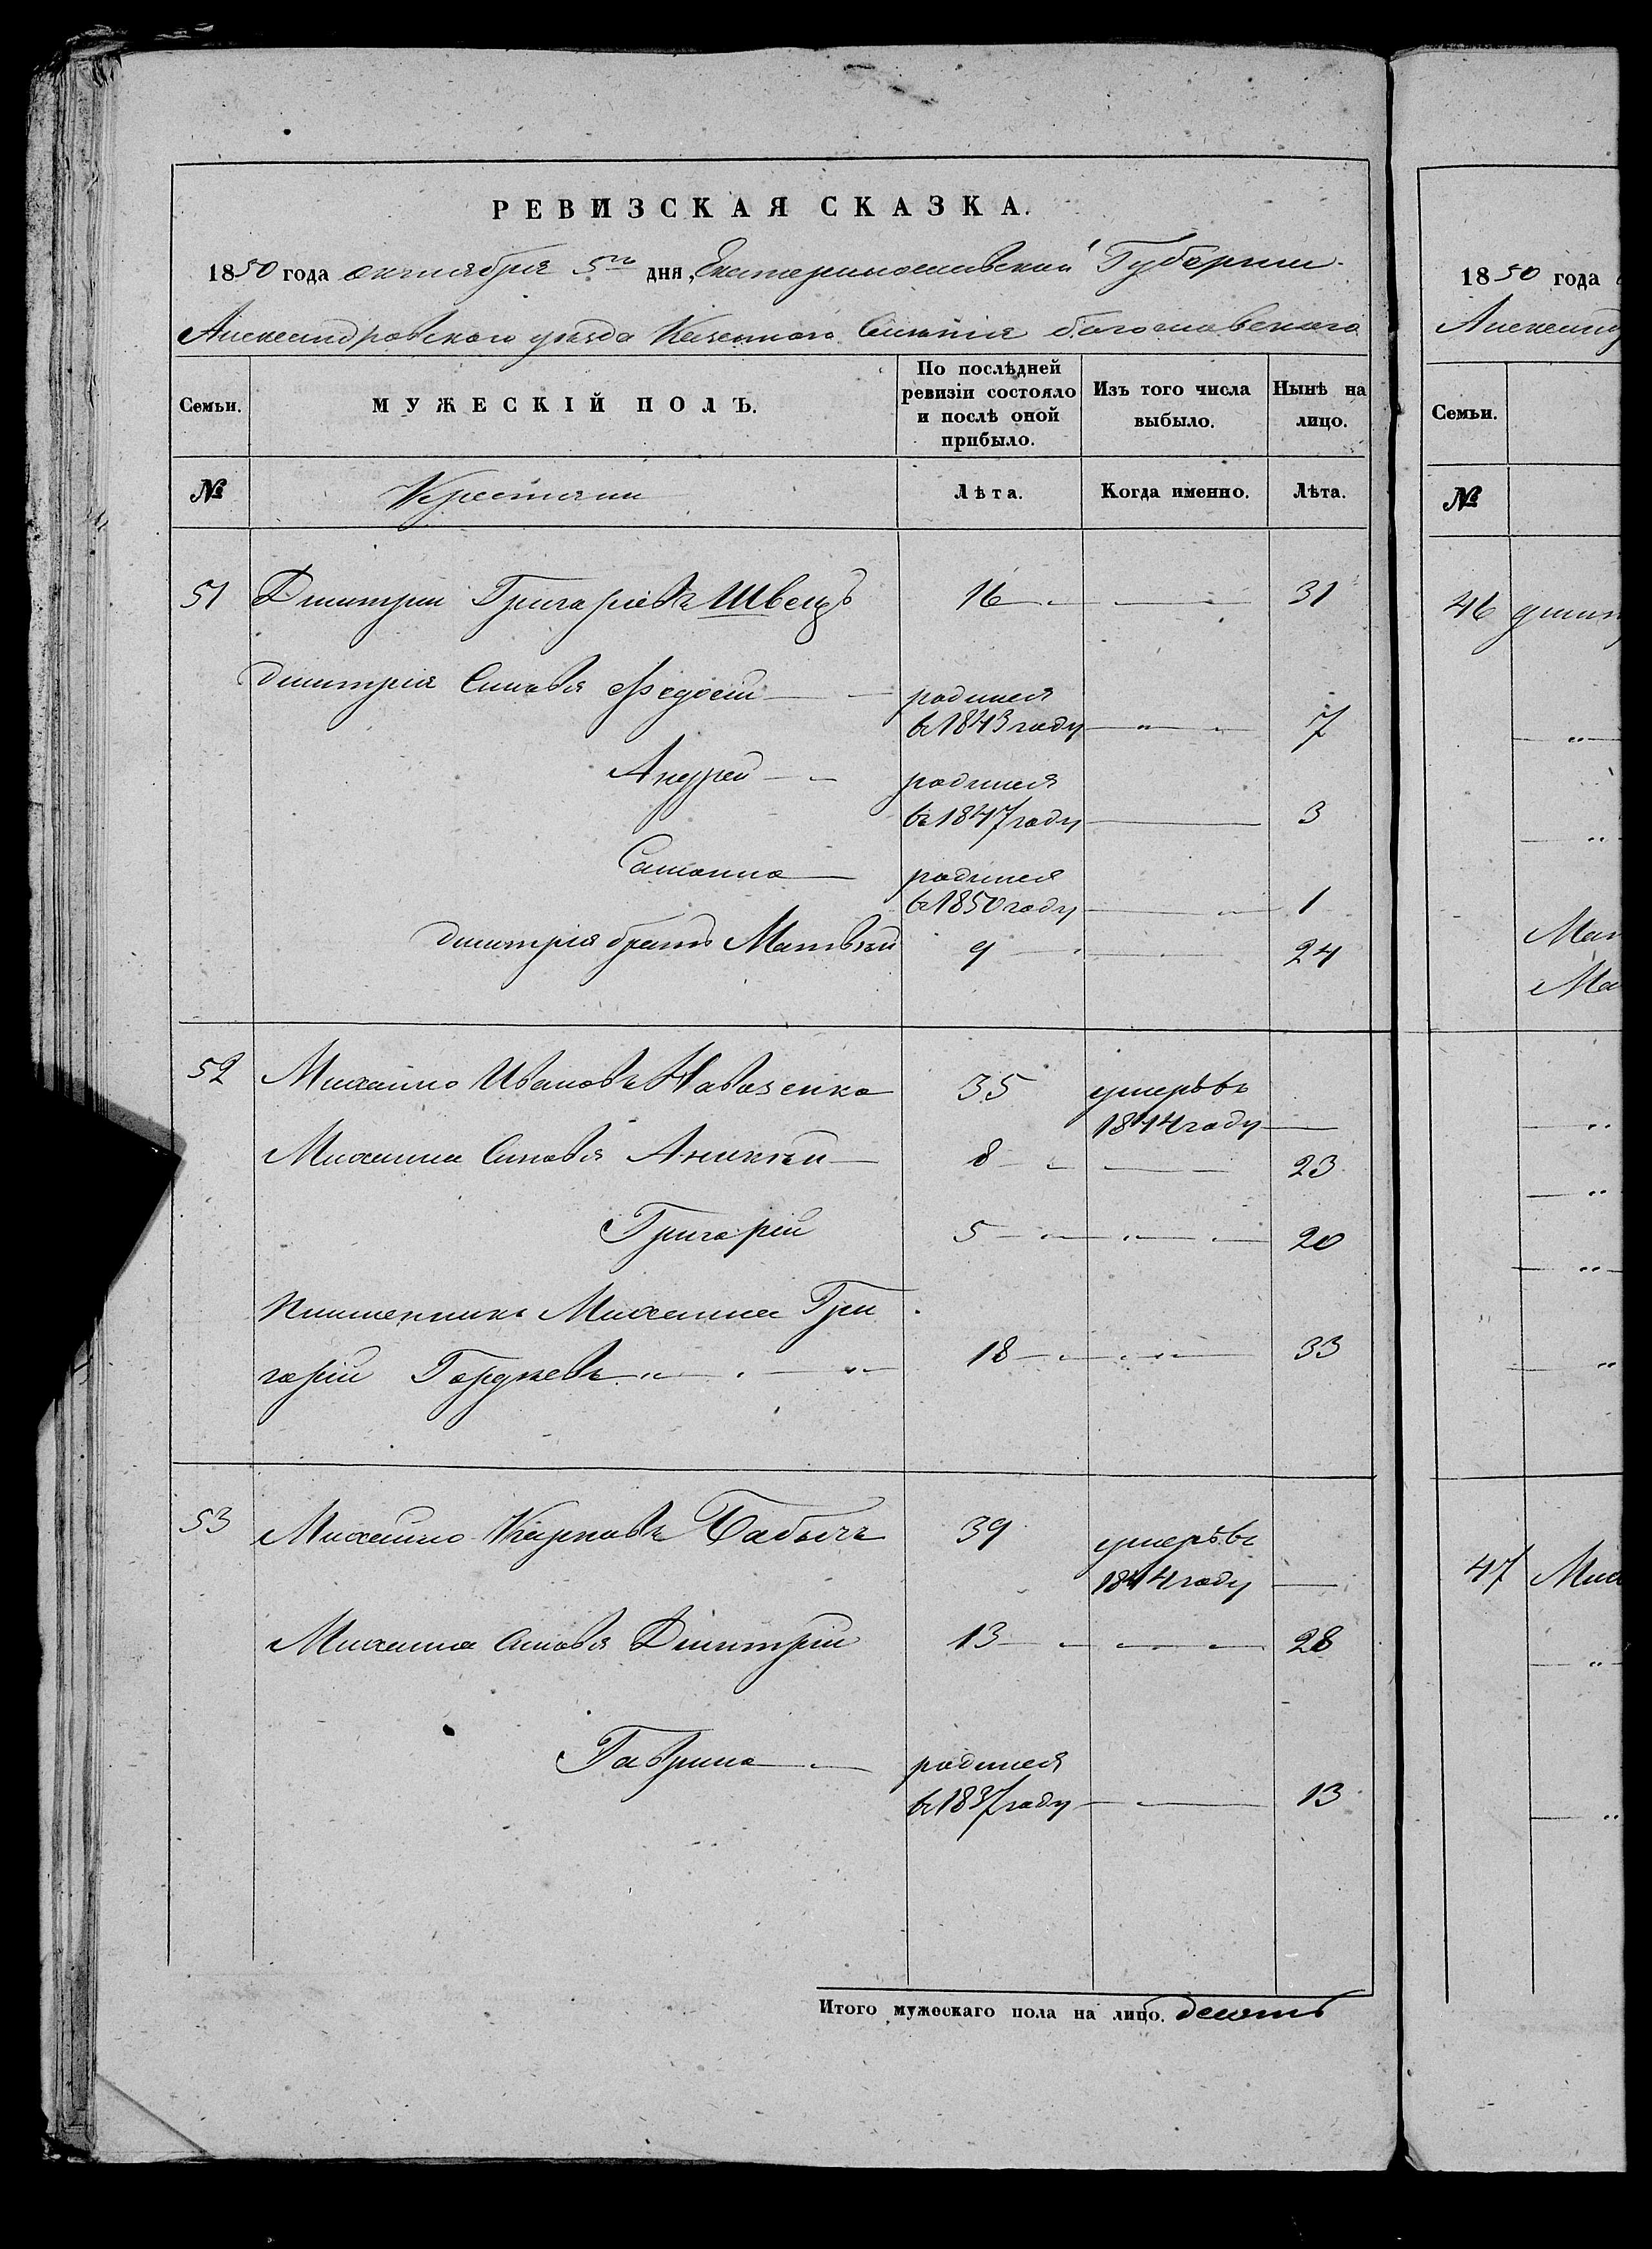 РЕВИЗСКАЯ СКАЗКА.
1850 года октября 5го дня, Екатеринославской Губернии
Александровского уезда Казенного Селения Богословского
Семьи. МУЖЕСКІЙ ПОЛЪ. По послѣдней ревизіи состояло и послѣ оной прибыло. Изъ того числа выбыло. Нынѣ на лицо.
№ Крестяни Лѣта. Когда именно. Лѣта.
51 Дмитрий Григориевъ Швецъ 16 31
Дмитрия Синовя Федосий родился
въ 1843 году 7
Андрей родился
въ 1847 году 3
Самоило родился
въ 1850 году 1
Дмитрия братъ Матвѣй 9 24
52 Михайло Ивановъ 35 умеръ въ
1844 году
Михаила Синовя Аникѣй 8 23
Григорий 5 20
племенникъ Михаила Гри
горий Гордиевъ 18 33
53 Михайло Карповъ Бабычъ 39 умеръ въ
1844 году
Михаила Синовя Дмитрий 13 28
Гаврило родился
въ 1837 году 13
Итого мужескаго пола на лицо. десять
1850 года
Александ
Семьи.
№
46 Дмит
Мат
Ма
47 Мих